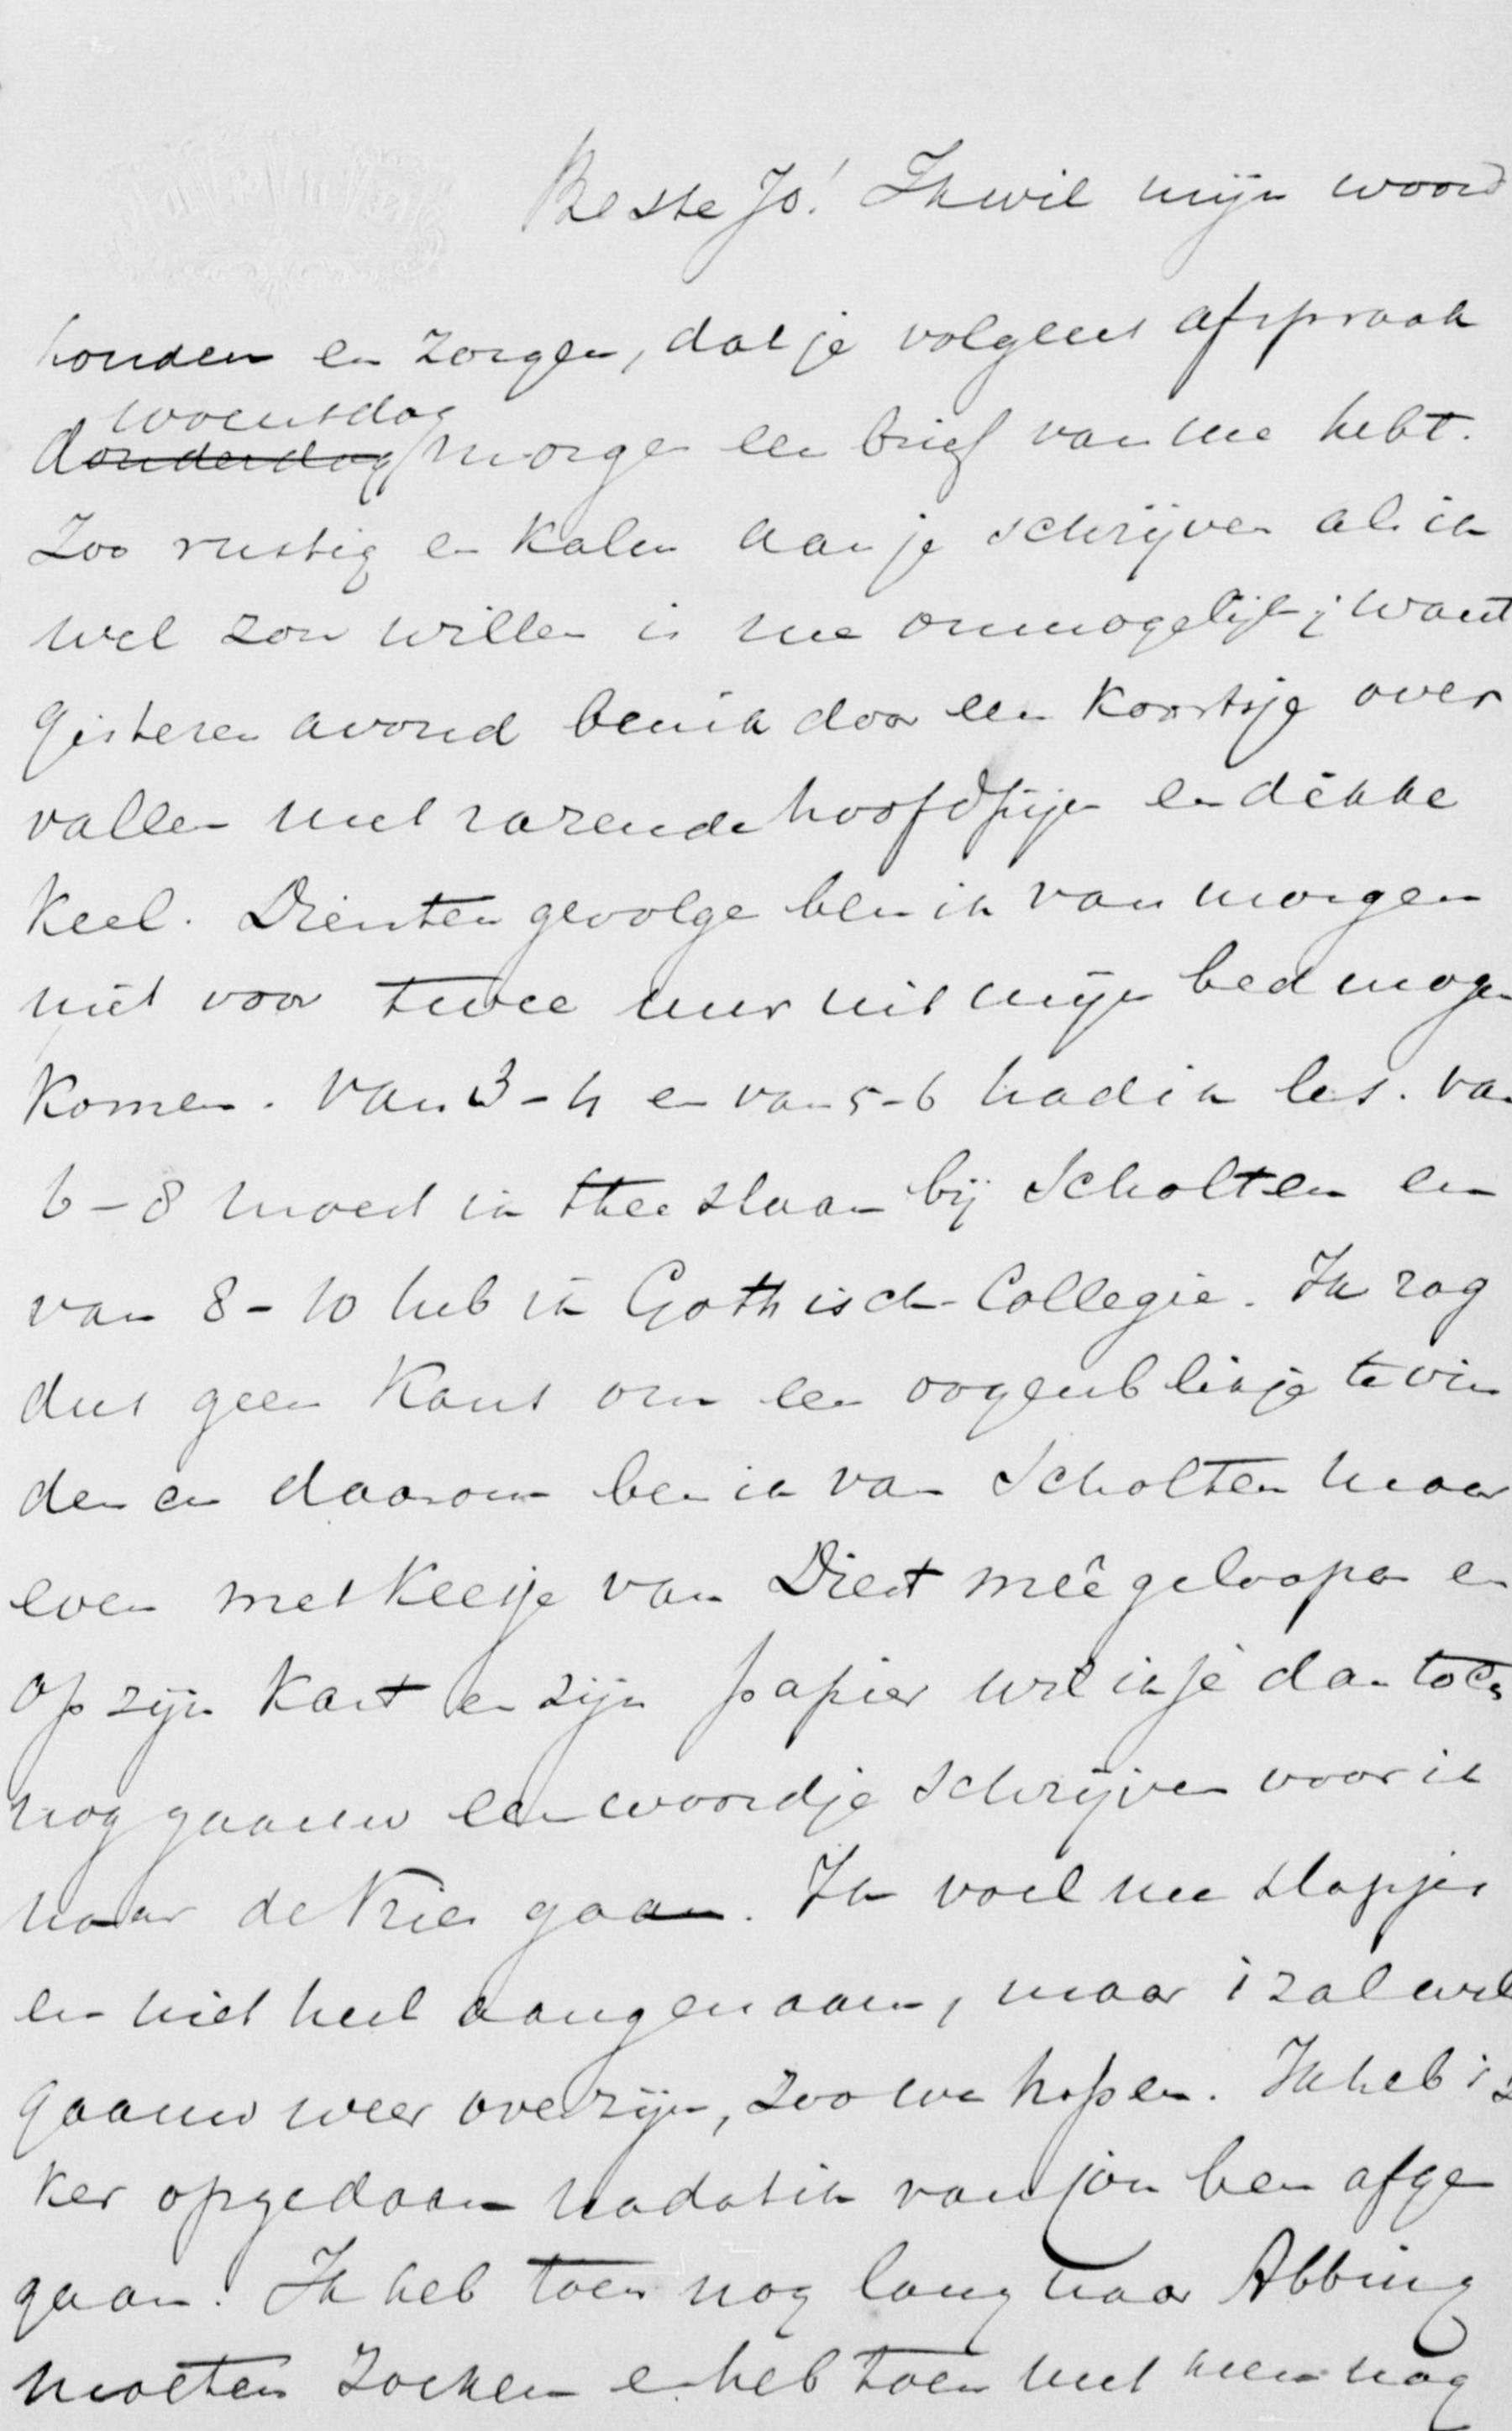 Beste Jo! Ik wil mijn woord
houden en zorgen, dat je volgens afspraak
woensdag
donderdag morgen een brief van me hebt.
Zoo rustig en kalm aan je schrijven als ik
wel zou willen is me onmogelijk; want
gisteren avond ben ik door een koortsje over
vallen met razende hoofdpijn en dikke
keel. Dientengevolge ben ik van morgen
niet voor twee uur uit mijn bed mogen
komen. Van 3-4 en van 5-6 had ik les. Van
6-8 moest ik thee slaan bij Scholten en
van 8-10 heb ik Gothisch-Collegie. Ik zag
dus geen kans om een oogenblikje te vin
den en daarom ben ik van Scholten maar
even met Keesje van Diest meêgeloopen en
op zijn kast en zijn papier wil ik je dan toch
nog gaauw een woordje schrijven voor ik
naar de Vries gaan. Ik voel me slapjes
en niet heel aangenaam, maar 't zal wel
gaauw weer over zijn, zoo we hopen. Ik heb 't ze
ker opgedaan nadat ik van jou ben afge
gaan. Ik heb toen nog lang naar Abbing
moeten zoeken en heb toen met hem nog